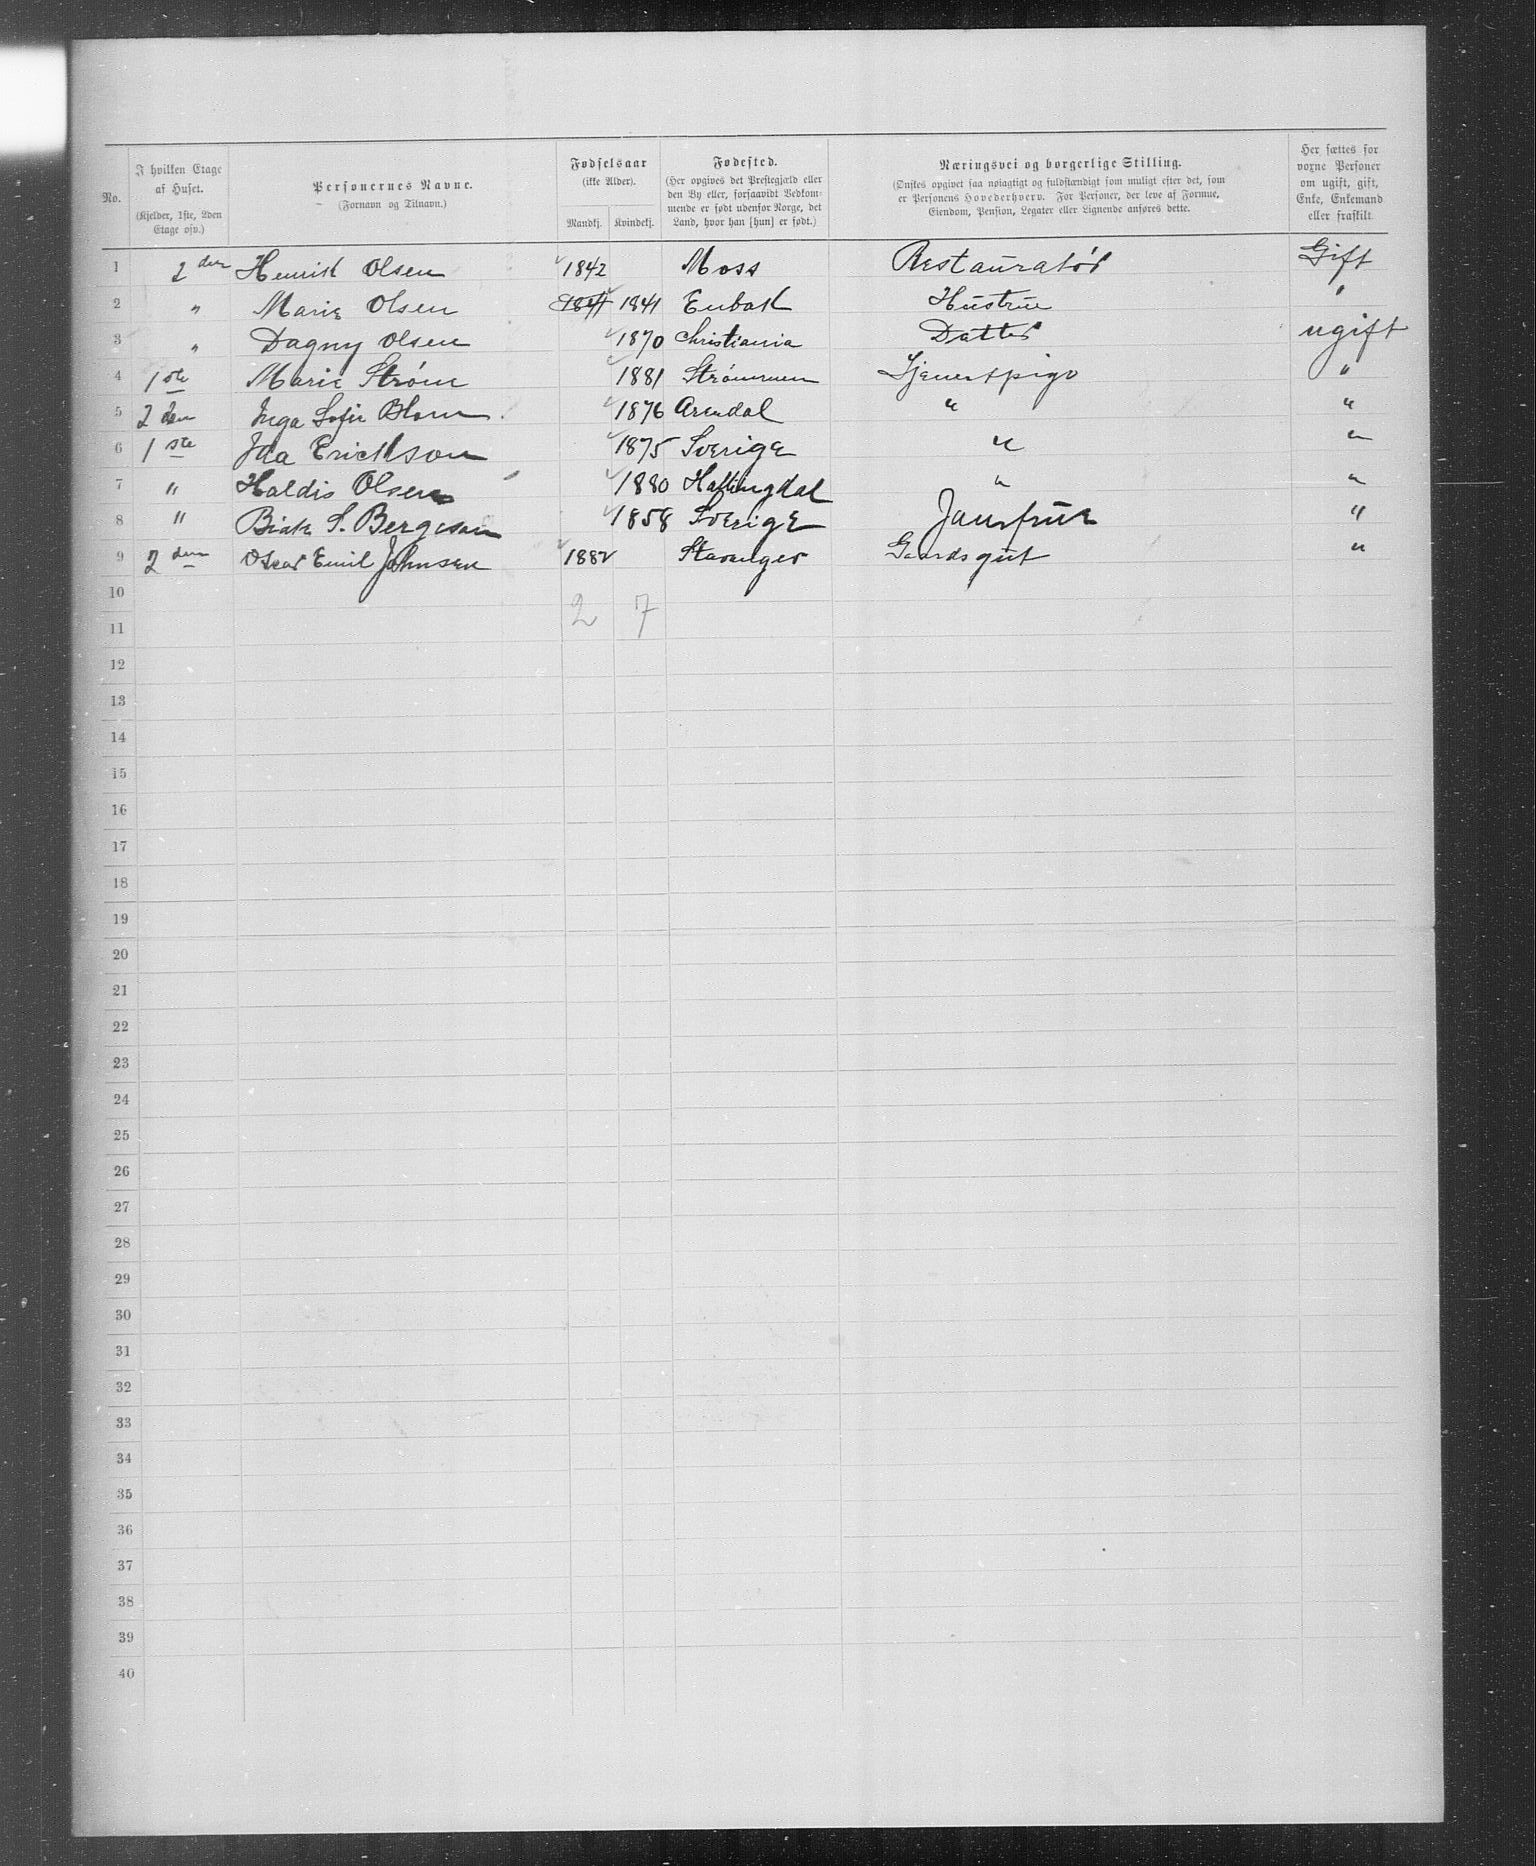 No. | I hvilken Etage af Huset. (Kjelder, 1ste, 2den Etage osv.) | Personernes Navne. (Fornavn og Tilnavn.) | Fødselsaar (ikke Alder). Mandkj. | Kvindekj. | Fødested. (Her opgives det Prestegjæld eller den By eller, forsaavidt Vedkommende er født udenfor Norge, det Land, hvor han [hun] er født.) | Næringsvei og borgerlige Stilling. (Ønskes opgivet saa nøiagtigt og fuldstændigt som muligt efter det, som er Personens Hovederhverv. For Personer, der leve af Formue, Eiendom, Pension, Legater eller Lignende anføres dette.) | Her sættes for voxne Personer om ugift, gift, Enke, Enkemand eller fraskilt.
1 | 2 den | Henrik Olsen | 1842 | | Moss | Restauratør | Gift
2 | " | Marie Olsen | 1841 | 1841 | Enbak | Hustrue | "
3 | " | Dagny Olsen | | 1870 | Christiania | Datter | ugift
4 | 1 ste | Marie Strøm | | 1881 | Strømmen | Tjenerspige | "
5 | 2 den | Inga Sofie Blom | | 1876 | Arendal | " | "
6 | 1 ste | Ida Erickson | | 1875 | Sverige | " | "
7 | " | Haldis Olsen | | 1880 | Hallingdal | " | "
8 | " | S. Bergeson | | 1858 | Sverige | Jomfrue | "
9 | 2 den | Oscar Emil Johnsen | 1882 | | Stavanger | Gaardsgut | "
10
2 7
11
12
13
14
15
16
17
18
19
20
21
22
23
24
25
26
27
28
29
30
31
32
33
34
35
36
37
38
39
40